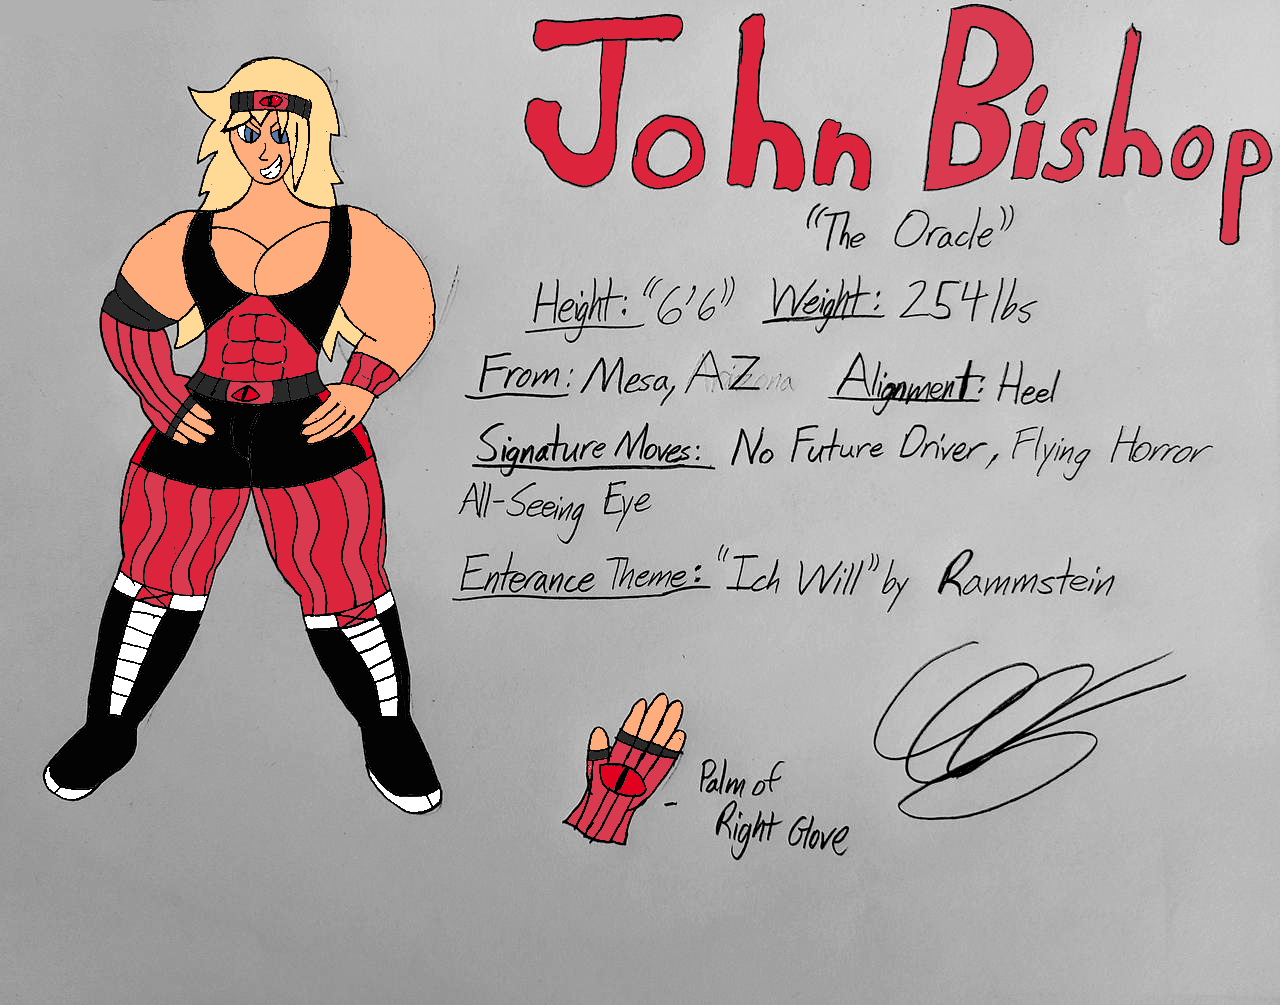 John Bishop
"The Oracle"
Height: "6'6" Weight: 254lbs
From: Mesa, AZ Alignment: Heel
Signature Moves: No Future Driver, Flying Horror
All-Seeing Eye
Enterance Theme: "Ich Will" by Rammstein
Palm of
Right Glove